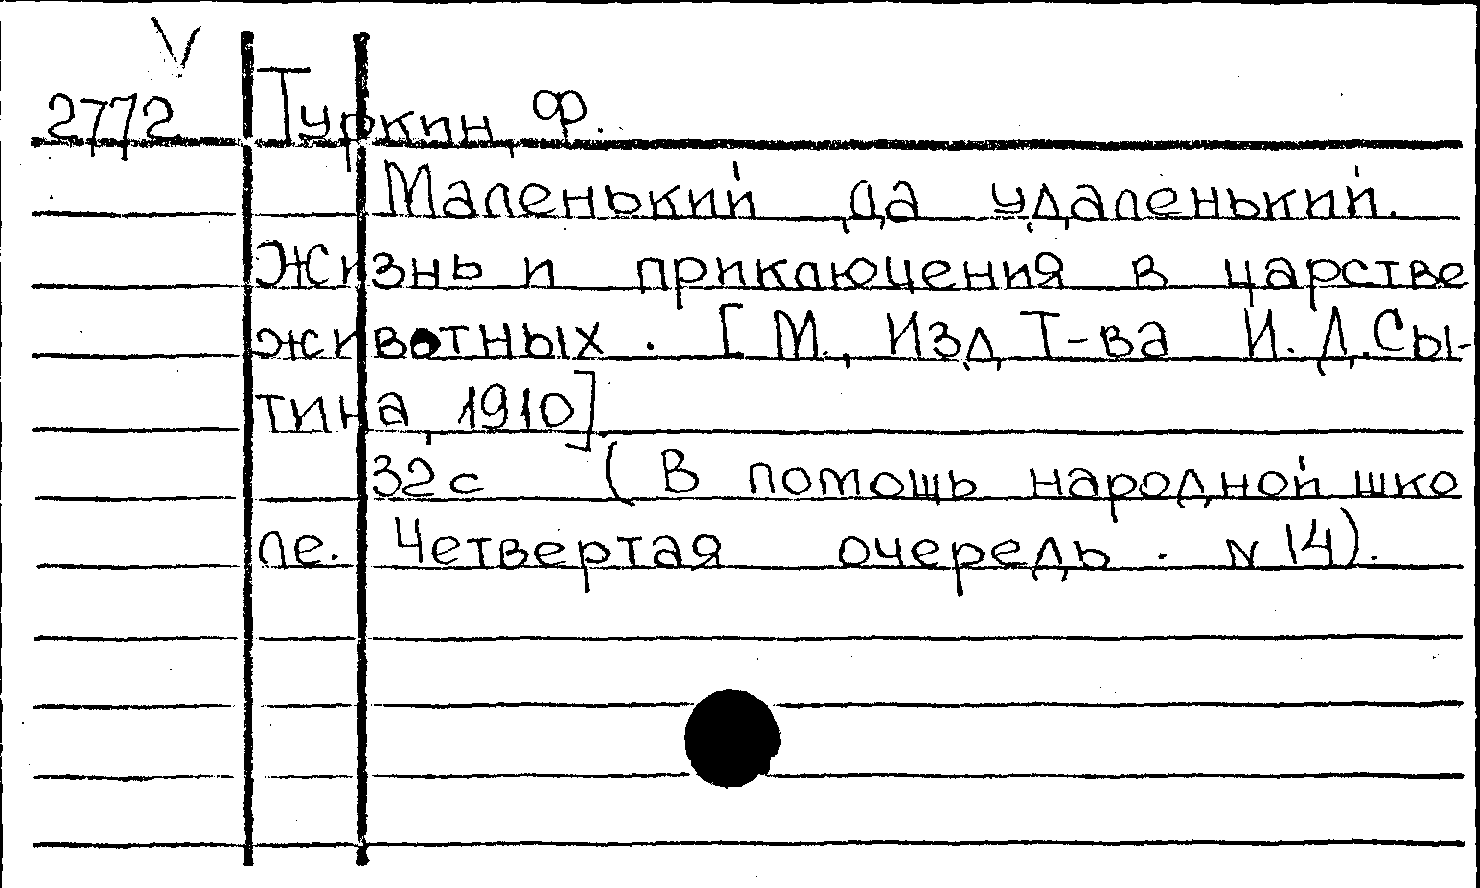 V
2772 Туркин, Ф.
Маленький да удаленький.
Жизнь и приключения в царстве
животных. [М., Изд. Т-ва И. Д. Сы-
тина, 1910].
32 с (В помощь народной шко
ле. Четвертая очередь. N 14).